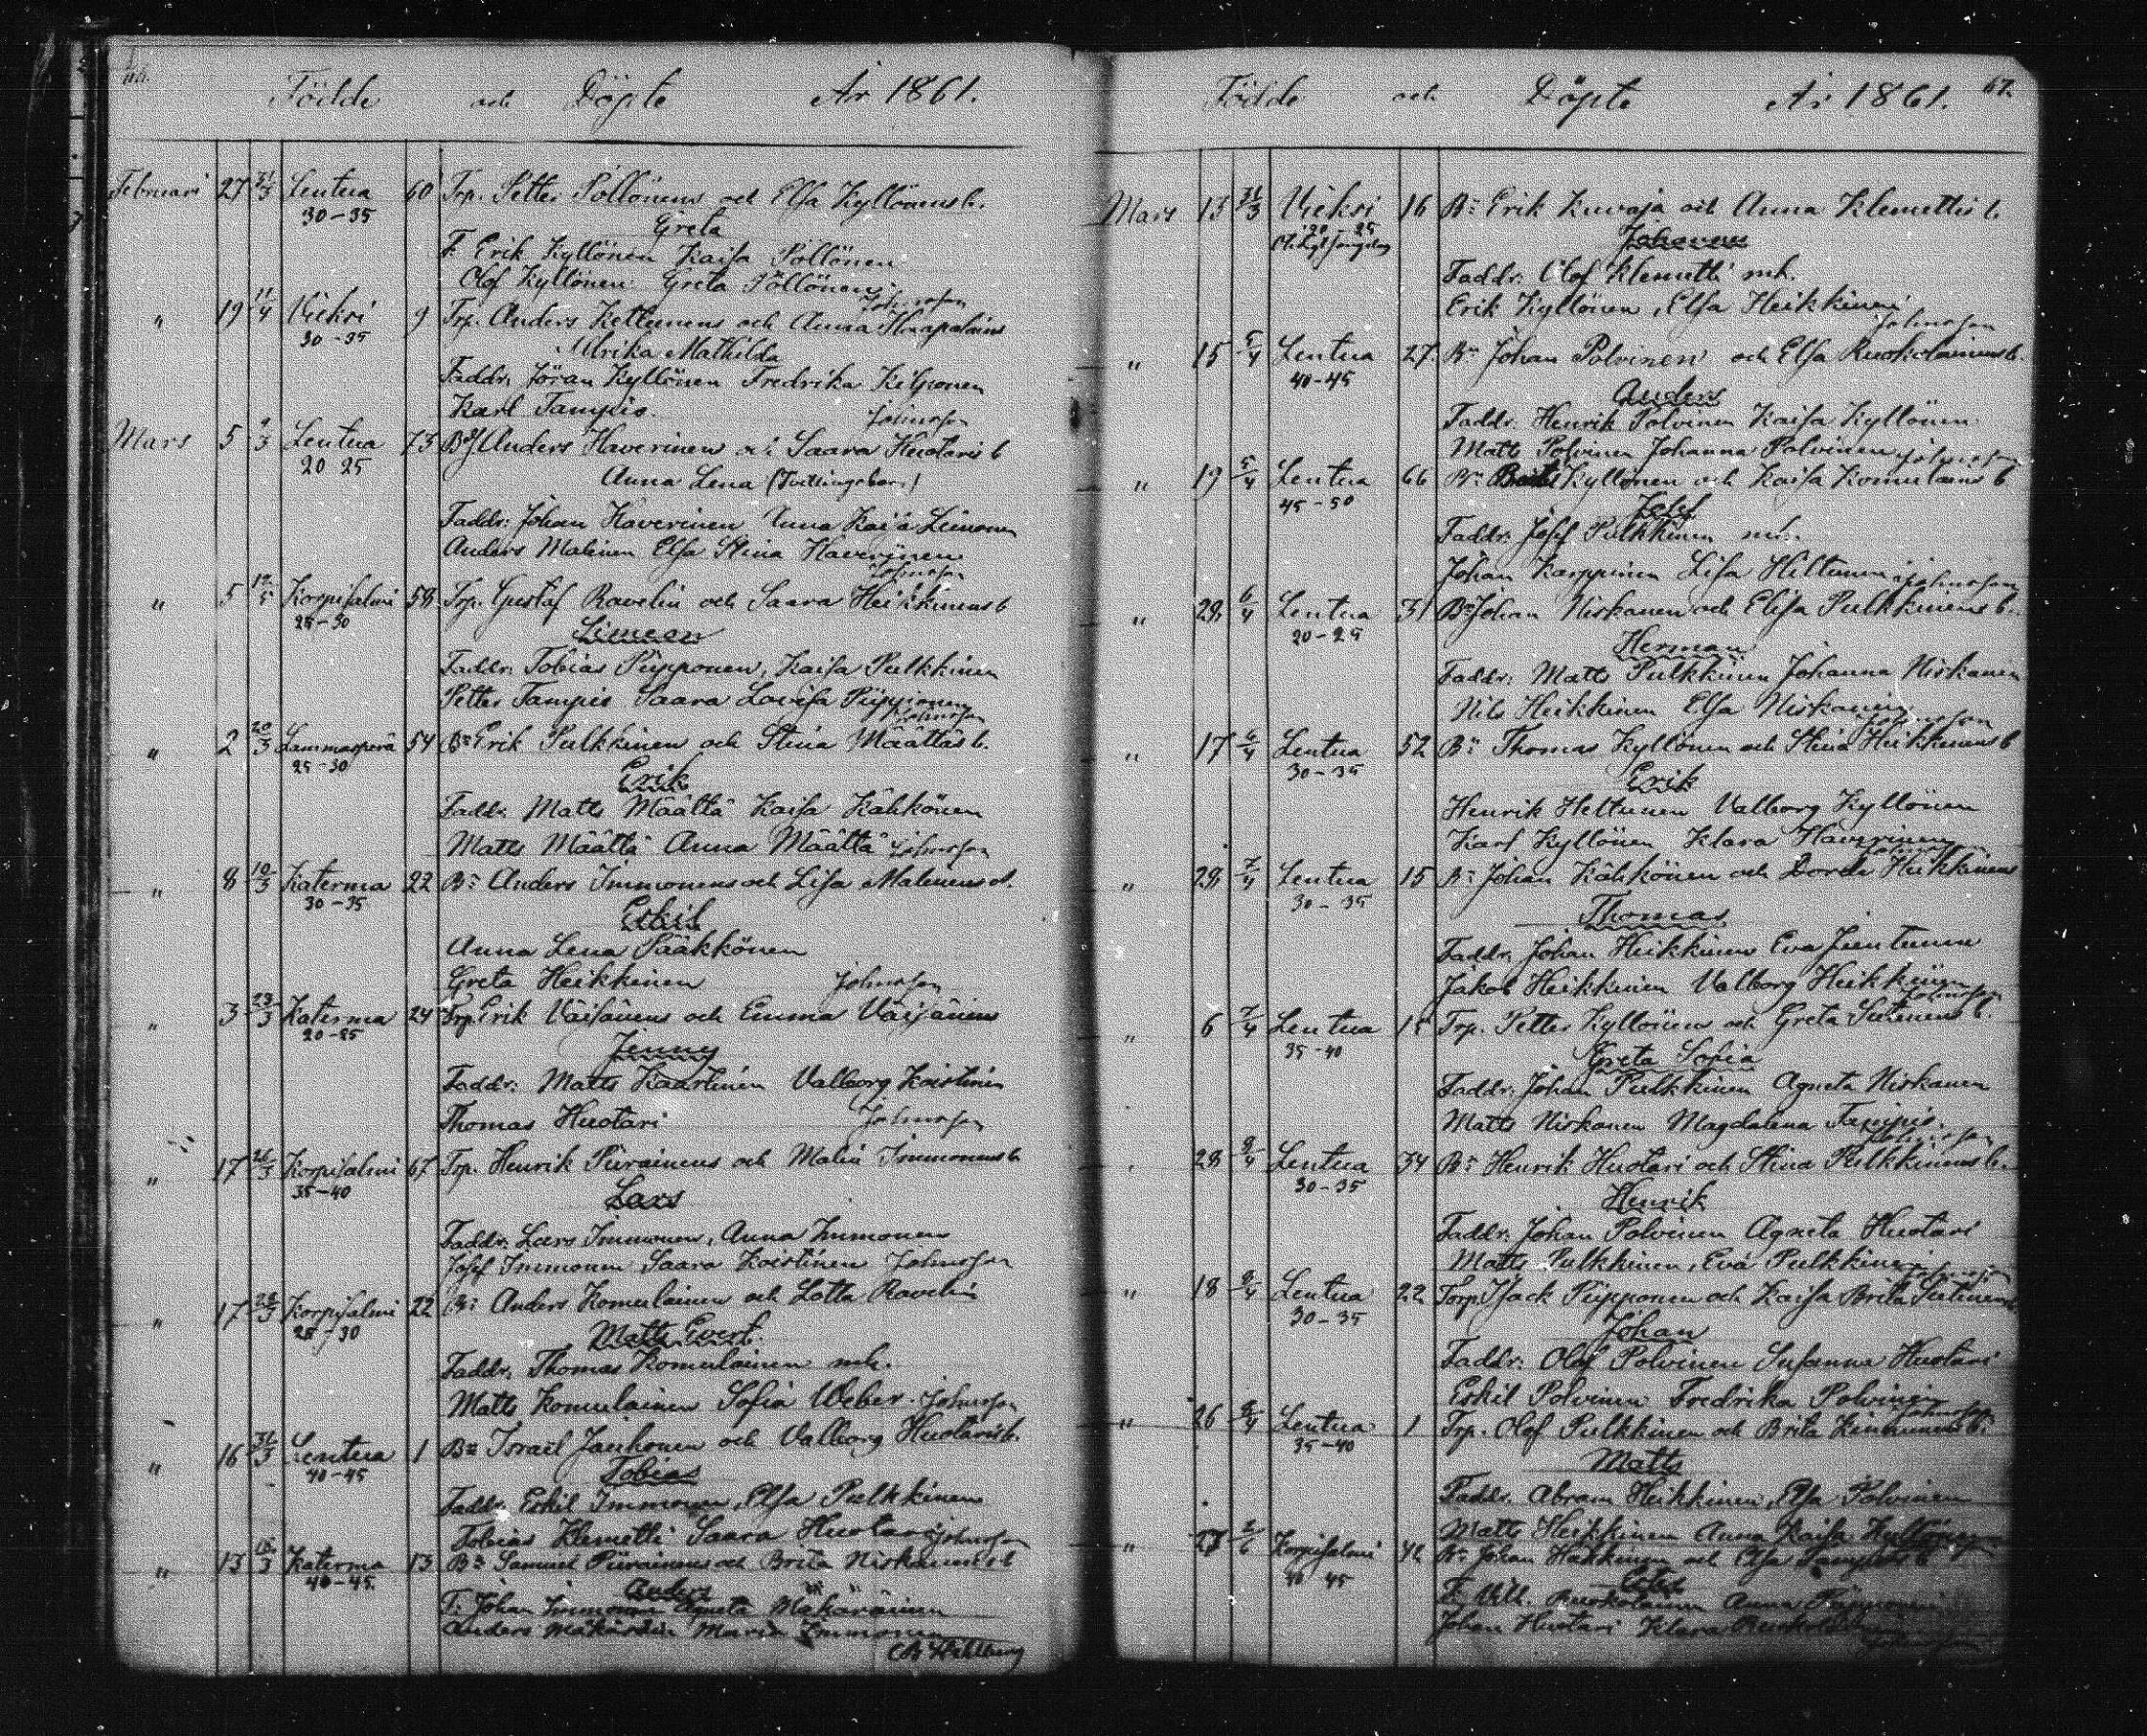 66.
Födde och Döpte År 1861.
Februari 27 31/3 Lentua 60 Trp. Petter Pöllönens och Elsa Kyllönens b.
30-35 Greta
F. Erik Kyllönen Kaisa Pöllönen
Olof Kyllönen Greta Pöllönen Johnsson
" 19 11/4 Viekri 9 Trp. Anders Kettunens och Anna Haapalains
30-35 Ulrika Mathilda
Faddr. Jöran Kyllönen Fredrika Kilponen
Karl Tampio. Johnsson
Mars 5 9/3 Lentua 73 Anders Haverinen och Saara Huotaris b
20 25 Anna Lena (Tvillingebarn)
Faddr: Johan Haverinen Anna Kajsa Leinonen
Anders Malinen Elsa Stina Haverinen
Johnsson
" 5 Korpisalmi 58 Trp. Gustaf Ravelin och Saara Heikkinens b
25-30 Simeon
Faddr. Tobias Piipponen, Kaisa Pulkkinen
Petter Tampio Saara Lovisa Piipponen
Johnsson
" 2 20/3 Lammasperä 54 Bn Erik Pulkkinen och Stina Määttäs b.
25-30 Erik
Faddr. Matts Määttä Kaisa Kähkönen
Matts Määttä Anna Määttä Johnsson
" 8 10/3 Katerma 22 Bn Anders Immonens och Lisa Malinens
30-35 Eskil
Anna Lena Pääkkönen
Greta Heikkinen Johnsson
" 3 23/3 Katerma 24 Trp Erik Väisänens och Emma Väisänens
20-25 Jenny
Faddr: Matts Kaartinen Valborg Koistinen
Thomas Huotari Johnsson
" 17 Korpisalmi 67 Trp. Henrik Piirainens och Maria Immonens b.
35-40 Lars
Faddr. Lars Immonen, Anna Immonen
Josef Immonen Saara Koistinen Johnsson
" 17 Korpisalmi 22 Bn Anders Komulainen och Lotta Ravelin
25-30 Matts Evert.
Faddr. Thomas Komulainen mh.
Matts Komulainen Sofia Weber. Johnsson
" 16 31/3 Lentua 1 Bn Israel Jauhonen och Valborg Huotaris b.
40-45 Tobias
Faddr. Eskil Immonen, Elsa Pulkkinen
Tobias Klemetti Saara Huotari Johnsson
" 13 Katerma 13 Bn Samuel Piirainens och Brita Niskanens b
40-45. Anders
F: Johan Immonen Agneta Mäkäräinen
Anders Mäkäräin Maria Immonen
67.
Födde och Döpte År 1861.
Mars 13 31/3 Viekri 16 Bn Erik Kuvaja och Anna Klemettis b.
20-25 Johannes
Faddr: Olof Klemetti mh.
Erik Kyllönen, Elsa Heikkinen
Johnsson
" 15 5/4 Lentua 27. Bn Johan Polvinen och Elsa Ruokolainens b.
40-45 Anders
Faddr. Henrik Polvinen Kaisa Kyllönen
Matts Polvinen Johanna Polvinen Johnsson
" 19 5/4 Lentua 66 Bn Kyllönen och Kaisa Komulains b
45-50 Josef
Faddr. Josef Pulkkinen mh.
Johan Karppinen Lisa Hiltunen Johnsson
" 28 6/4 Lentua 31 Bn Johan Niskanen och Elisa Pulkkinens b.
20-25 Herman
Faddr: Matts Pulkkinen Johanna Niskanen
Nils Heikkinen Elsa Niskanen
Johnsson
" 17 6/4 Lentua 52 Bn Thomas Kyllönen och Stina Heikkinens b
30-35 Erik
Henrik Heltunen Valborg Kyllönen
Karl Kyllönen Klara Haverinen
" 28 7/4 Lentua 15 Bn Johan Kähkönen och Dordi Heikkinens
30-35 Thomas
Faddr. Johan Heikkinen Eva Juntunen
Jakob Heikkinen Valborg Heikkinen
Johnsson
" 6 7/4 Lentua 15 Trp. Petter Kyllönens och Greta Sutinens b.
35-40 Greta Sofia
Faddr. Johan Pulkkinen Agneta Niskanen
Matts Niskanen Magdalena Tampio.
Johnsson
28 8/4 Lentua 34 Bn Henrik Huotari och Stina Pulkkinens b.
30-35 Henrik
Faddr. Johan Polvinen Agneta Huotari
Matts Pulkkinen, Eva Pulkkinen
Johnsson
" 18 8/4 Lentua 22 Torp Isack Piipponen och Kaisa Brita Sutinens
30-35 Johan
Faddr: Olof Polvinen Susanna Huotari
Eskil Polvinen Fredrika Polvinen
Johnsson
" 26 8/4 Lentua 1 Trp. Olof Pulkkinen och Brita Kinnunens b.
35-40 Matts
Faddr. Abram Heikkinen, Elsa Polvinen
Matts Heikkinen Anna Kaisa Kyllönen
" 27 Korpisalmi 42 Bn Johan Heikkinen och Elsa
40 45
F. Ruokolainen Anna Piipponen
Johan Huotari Klara Ruokolainen
Johnsson